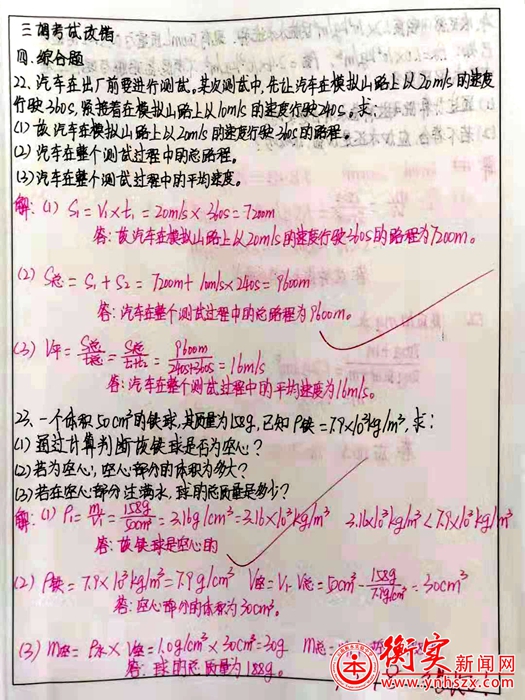 三调考试改错
四.综合题
22.汽车在出厂前要进行测试。某次测试中,先让汽车在模拟山路上以20m/s的速度
行驶360s,紧接着在模拟山路上以10m/s的速度行驶240s。求:
(1)该汽车在模拟山路上以20m/s的速度行驶360s的路程。
(2)汽车在整个测试过程中的总路程。
(3)汽车在整个测试过程中的平均速度。
解:(1) S₁=V₁×t₁=20m/s×360s=7200m
答:该汽车在模拟山路上以20m/s的速度行驶360s的路程为7200m。
(2) S总=S₁+S₂=7200m+10m/s×240s=9600m
答:汽车在整个测试过程中的总路程为9600m。
(3) V平=S总/t总=S总/t₁+t₂=9600m/240s+360s=16m/s
答:汽车在整个测试过程中的平均速度为16m/s。
23.一个体积50cm³的铁球,其质量为158g,已知ρ铁=7.9×10³kg/m³,求:
(1)通过计算判断该铁球是否为空心?
(2)若为空心,空心部分的体积为多大?
(3)若在空心部分注满水,球的总质量是多少?
解:(1) ρ₁=m₁/V₁=158g/50cm³=3.16g/cm³=3.16×10³kg/m³ 3.16×10³kg/m³<7.9×10³kg/m³
答:该铁球是空心的
(2) ρ铁=7.9×10³kg/m³=7.9g/cm³ V空=V₁-V总=50cm³-158g/7.9g/cm³=30cm³
答:空心部分的体积为30cm³。
(3) m空=ρ水×V空=1.0g/cm³×30cm³=30g m总=
答:球的总质量为188g。
衡实新闻网
www.ynhszx.com